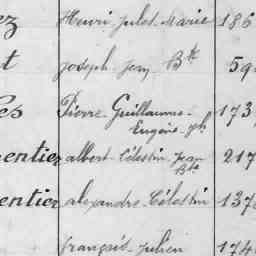 ez Henri Jules Marie 186
t Joseph Jean Bte 59
es Pierre Guillaume
Eugène Jh 173
entier albert Célestin Jean 217
Bte
entier alexandre Célestin 137
françois Julien 174